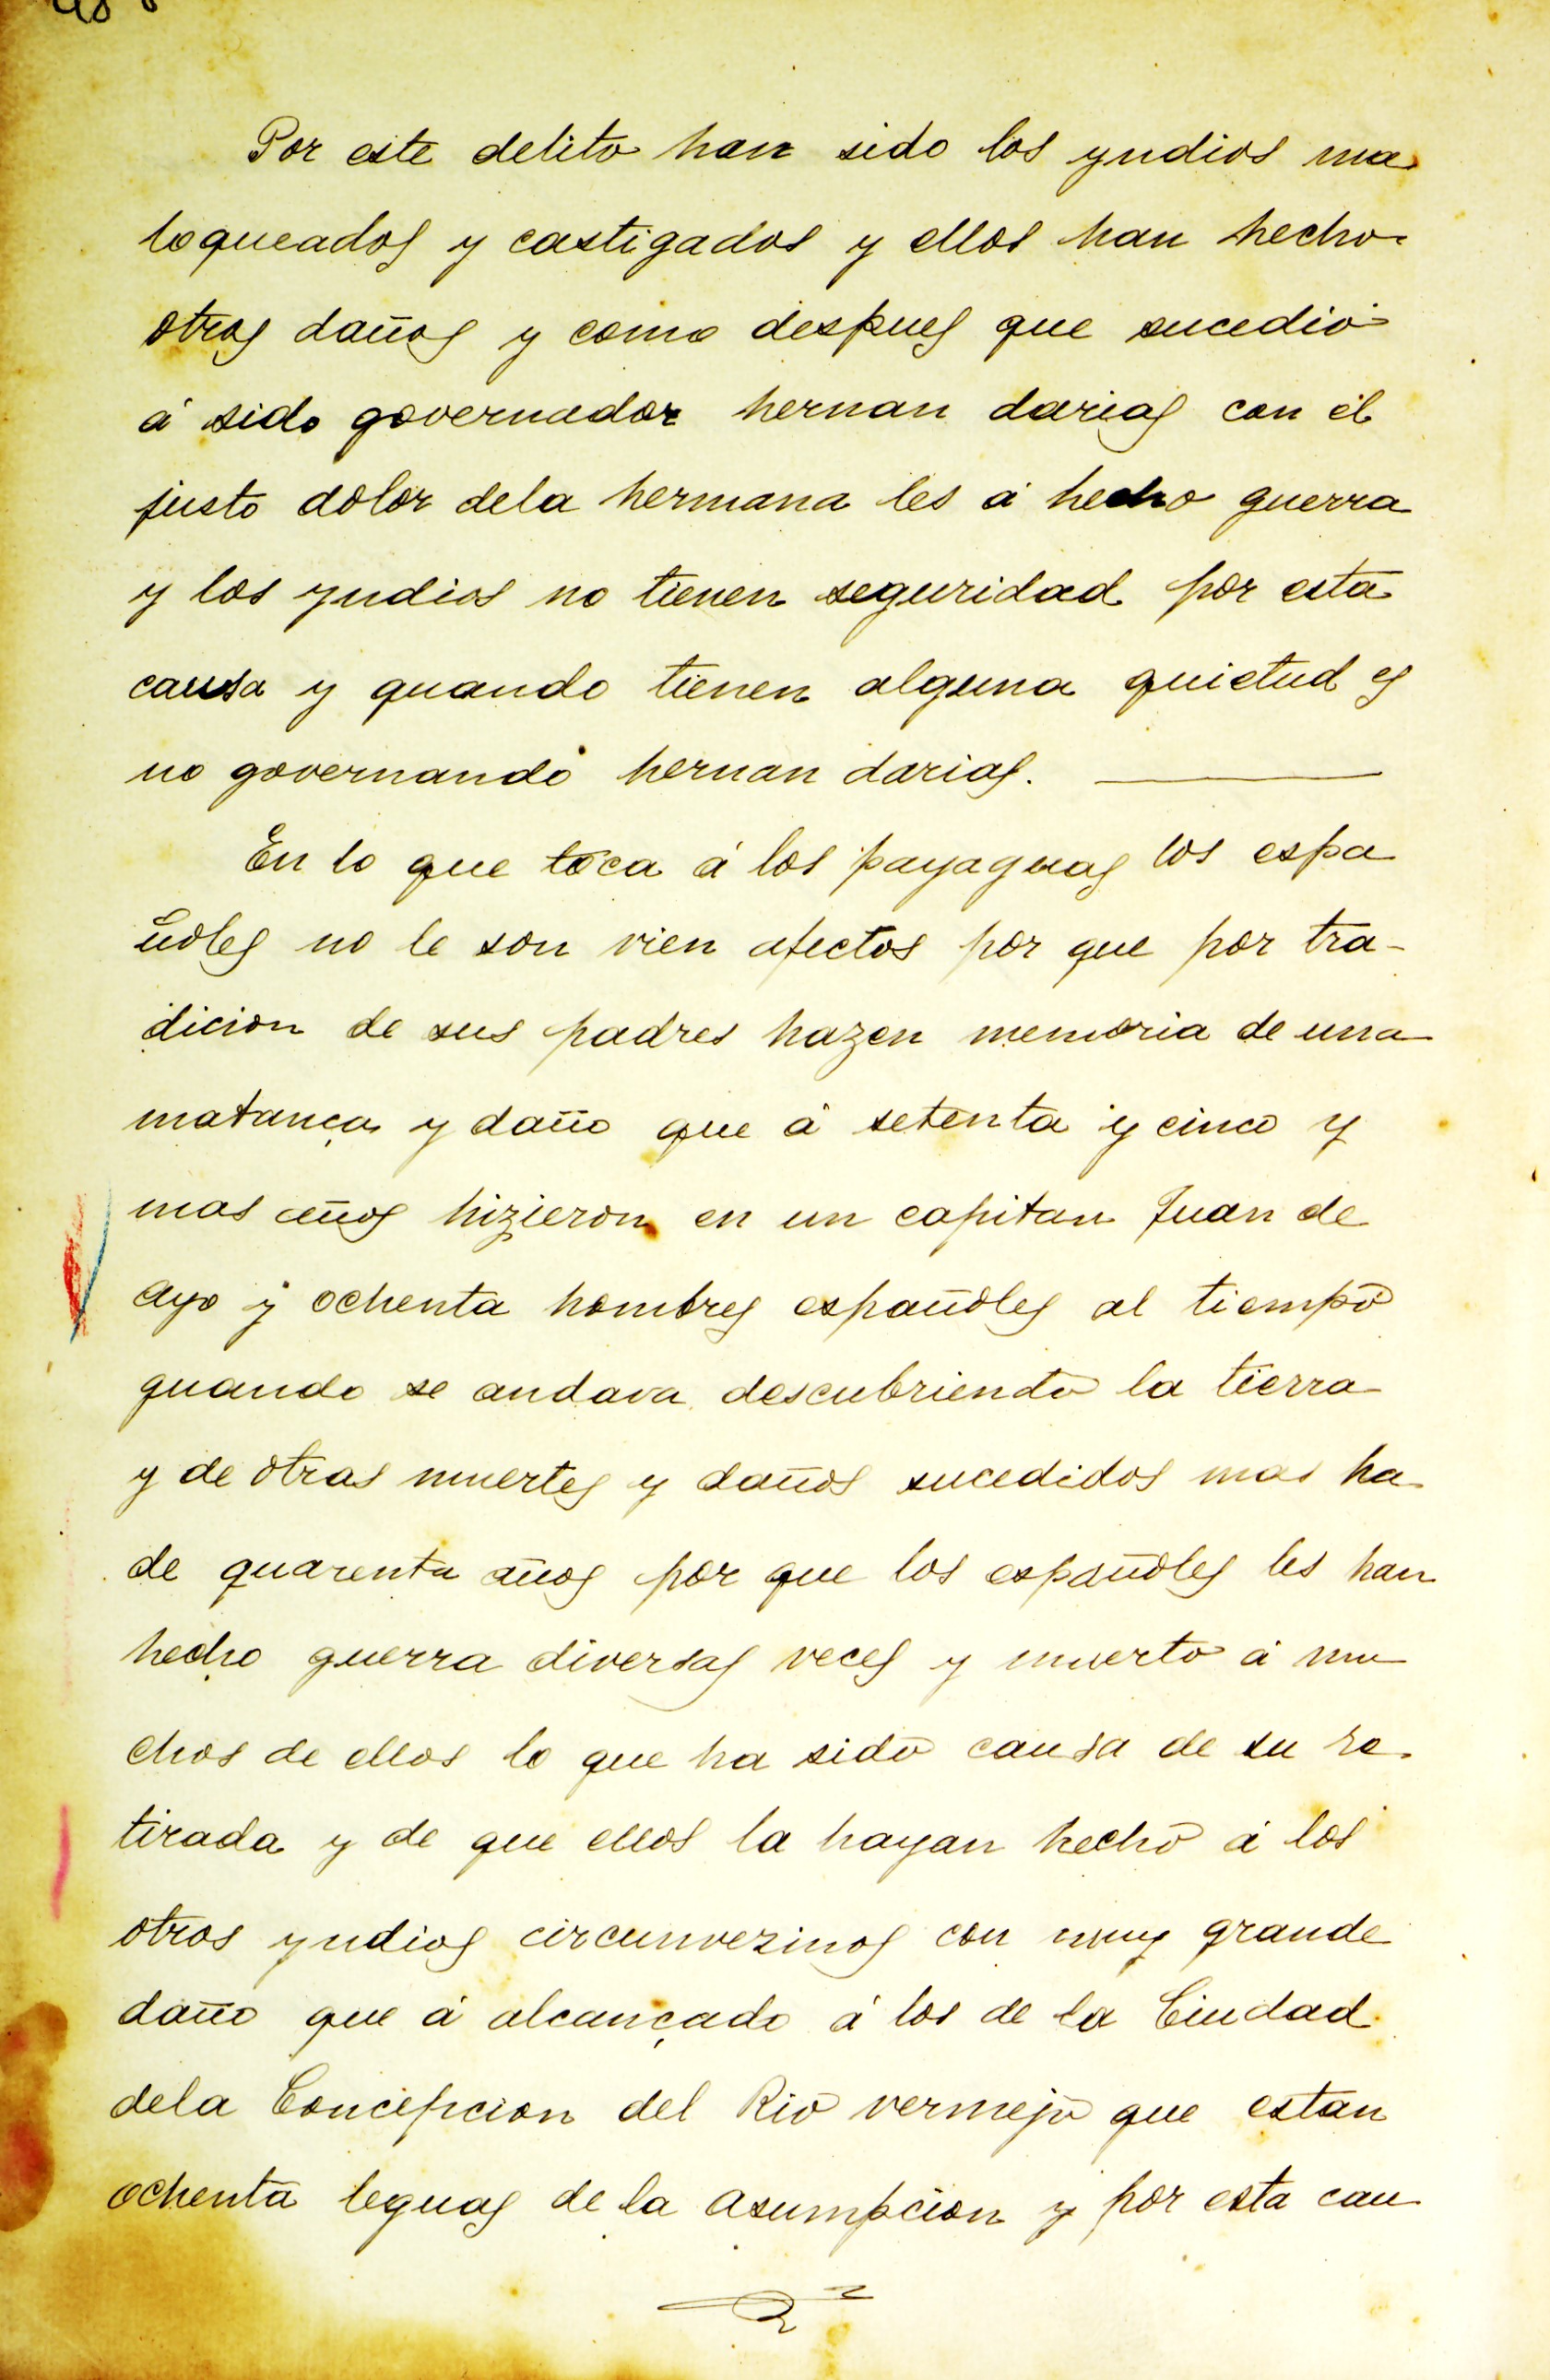 Por este delito han sido los yndios ma
loqueados y castigados y ellos han hecho
otros daños y como despues que sucedió
á sido governador hernan darias con el
justo dolor dela hermana les á hecho guerra
y los yndios no tienen seguridad por esta
causa y quando tienen alguna quietud es
no governando hernan darias.
En lo que toca á los payaguas los espa
ñoles no le son vien afectos por que por tra-
dicion de sus padres hazen memoria de una
matança y daño que á setenta y cinco y
mas años hizieron en un capitan Juan de
Ayo y ochenta hombres españoles al tiempo
quando se andava descubriendo la tierra
y de otras muertes y daños sucedidos mas ha
de quarenta años por que los españoles les han
hecho guerra diversas veces y muerto á mu
chos de ellos lo que ha sido causa de su re-
tirada y de que ellos la hayan hecho á los
otros yndios circunvezinos con muy grande
daño que á alcançado á los de la Ciudad
dela Concepcion del Rio vermejo que estan
ochenta leguas de la asumpcion y por esta cau